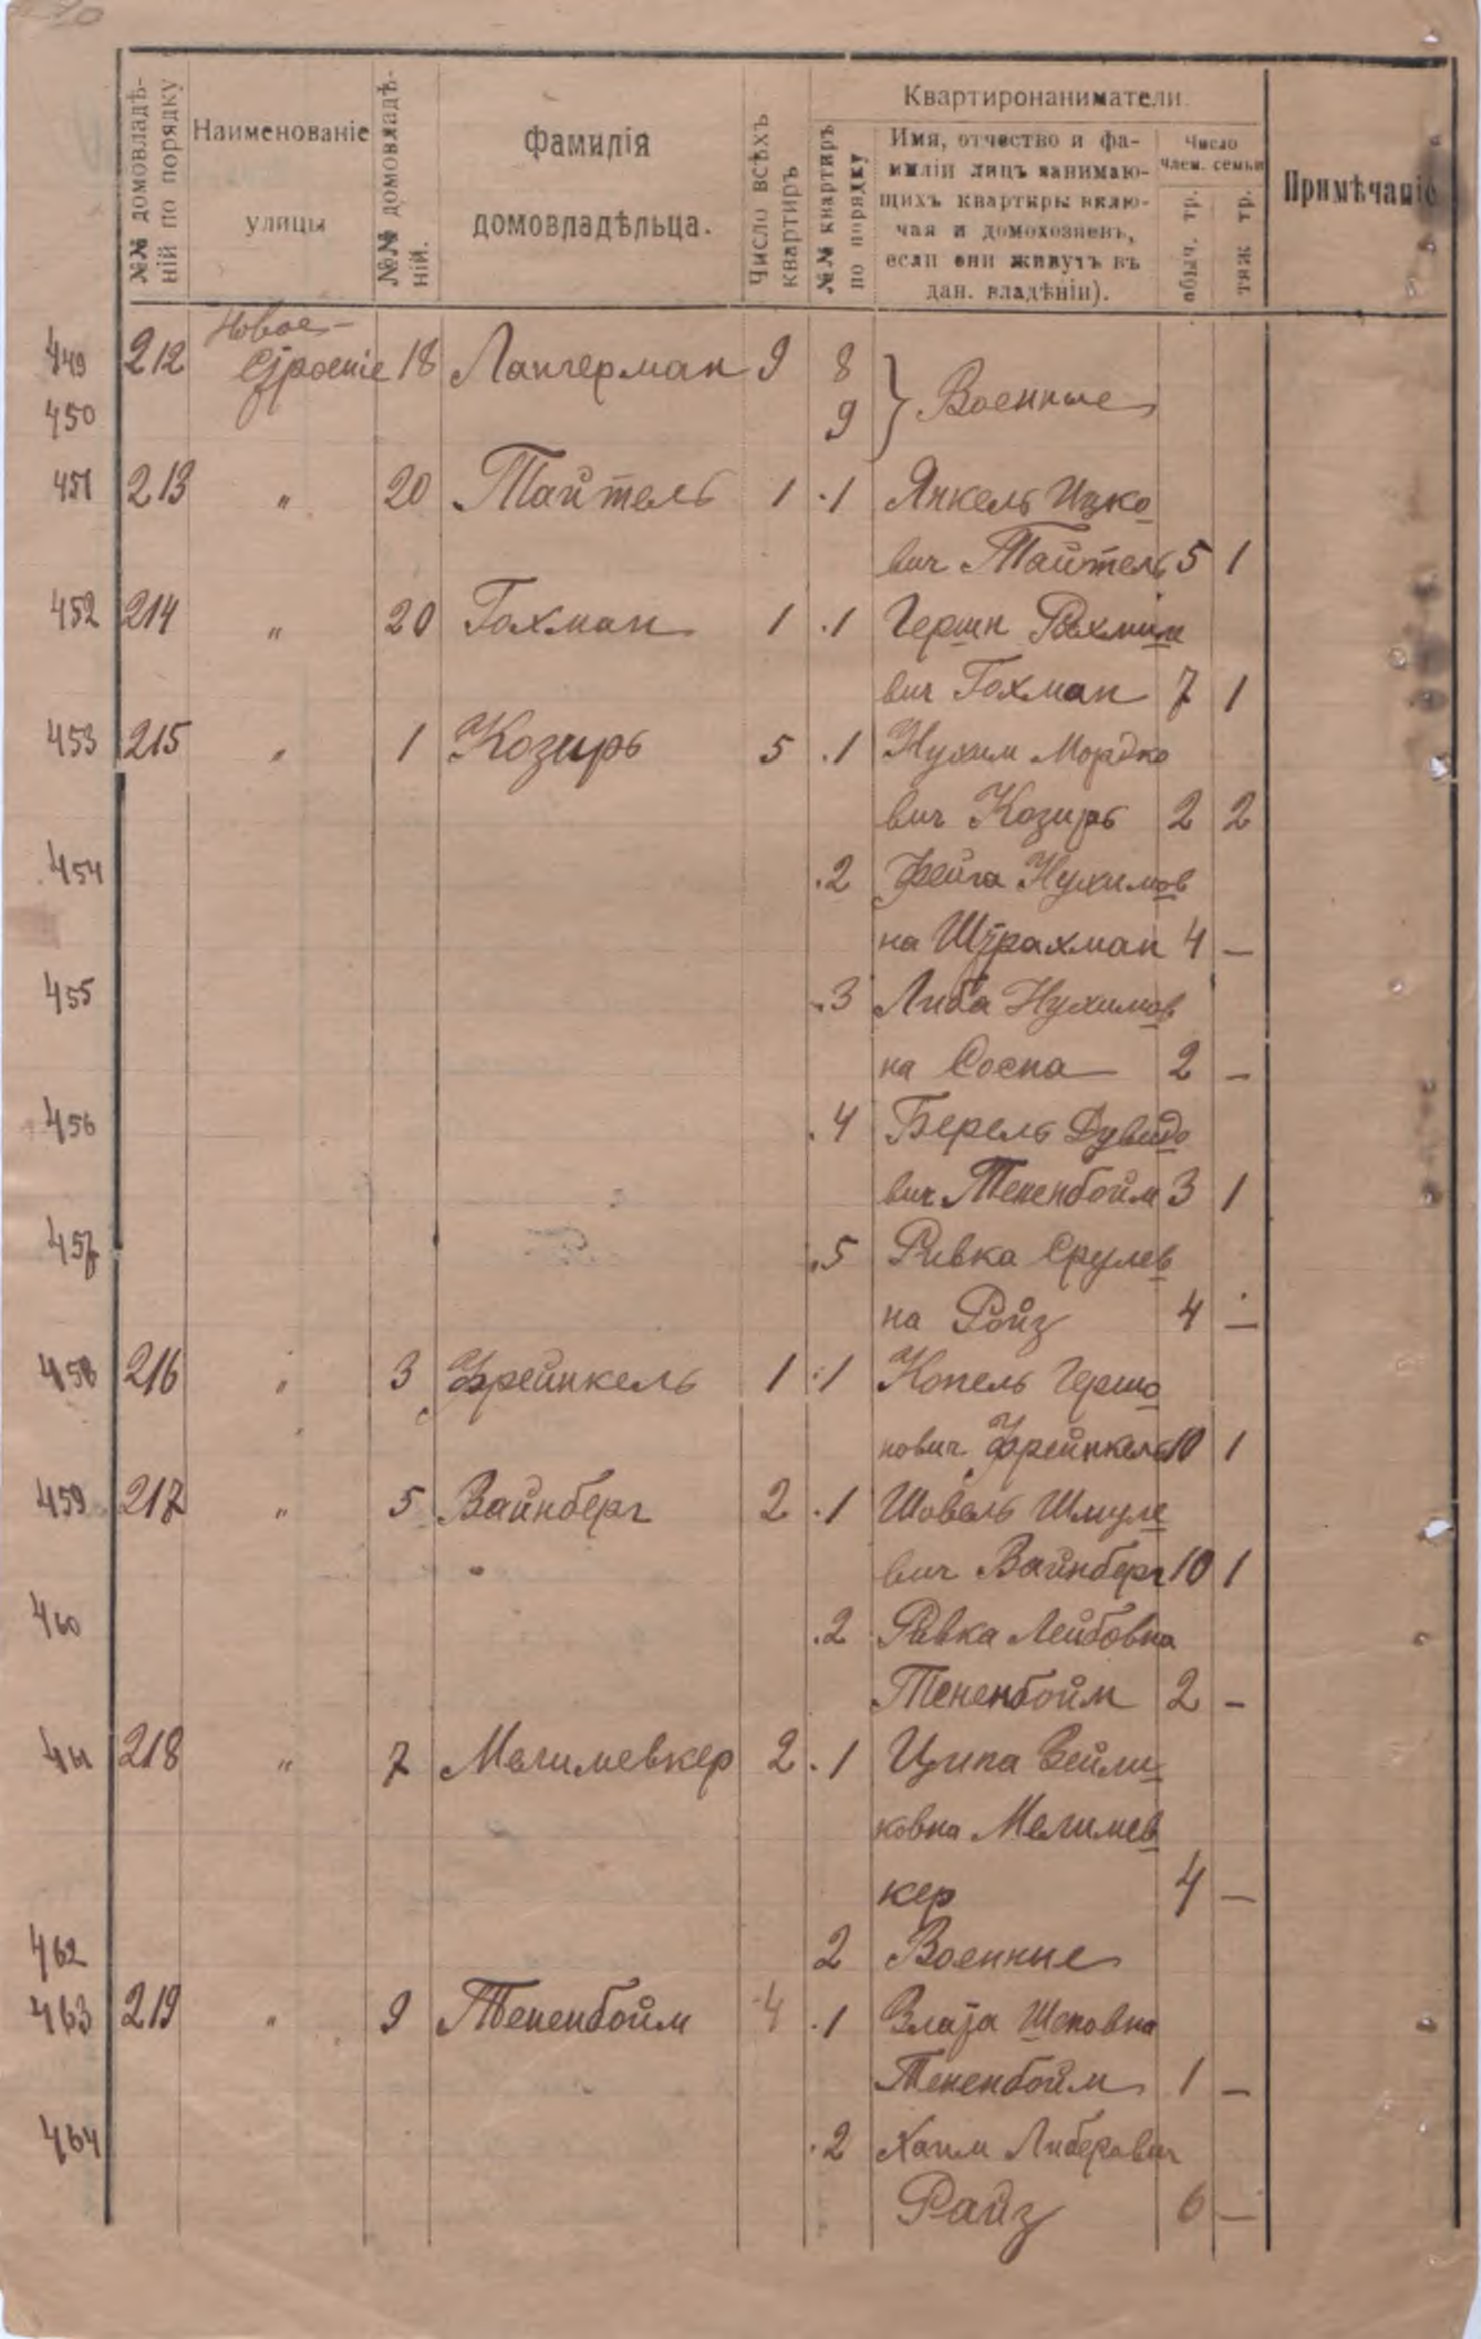 №№ домовладѣ-
ній по порядку
Наименованіе
улицы
№№ домовладѣ-
ній.
Фамилія
домовладѣльца.
Число всѣхъ
квартиръ
Квартиронаниматели.
№№ квартиръ
по порядку
Имя, отчество и фа-
миліи лицъ занимаю-
щихъ квартиры вклю-
чая и домохозяевъ,
если они живутъ въ
дан. владѣніи).
Число
член. семьи
обыч. тр.
тяж тр.
Примѣчаніе
Новое-
449 212 Строеніе 18 Лангерман 9 8 } Военные
450 9
451 213 " 20 Тайтель 1 1 Янкель Ицко
вич Тайтель 5 1
452 214 " 20 Гохман 1 1 Герш
вич Гохман 7 1
453 215 " 1 Козирь 5 1 Нухим Мордко
вич Козирь 2 2
454 2 Фейга Нухимов
на Штрахман 4 —
455 3 Либа Нухимов
на Сосна 2 —
456 4 Берель Дувидо
вич Тененбойм 3 1
457 5 Ривка Срулев
на Ройз 4 —
458 216 " 3 Фрейнкель 1 1 Копель Гершо
нович Фрейнкель 10 1
459 217 " 5 Вайнберг 2 1 Шовель Шмуле
вич Вайнберг 10 1
460 2 Ривка Лейбовна
Тененбойм 2 —
461 218 " 7 Мегимевкер 2 1 Ципа Зейли
ковна Мегимев
кер 4 —
462 2 Военные
463 219 " 9 Тененбойм 4 1 Злата
Тененбойм 1 —
464 2 Хаим Либерович
Райз 6 —